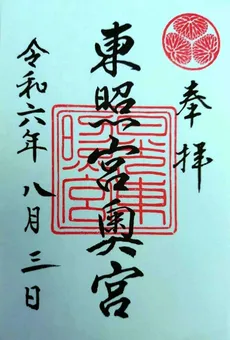 奉拝
東照宮奥宮
令和六年八月三日